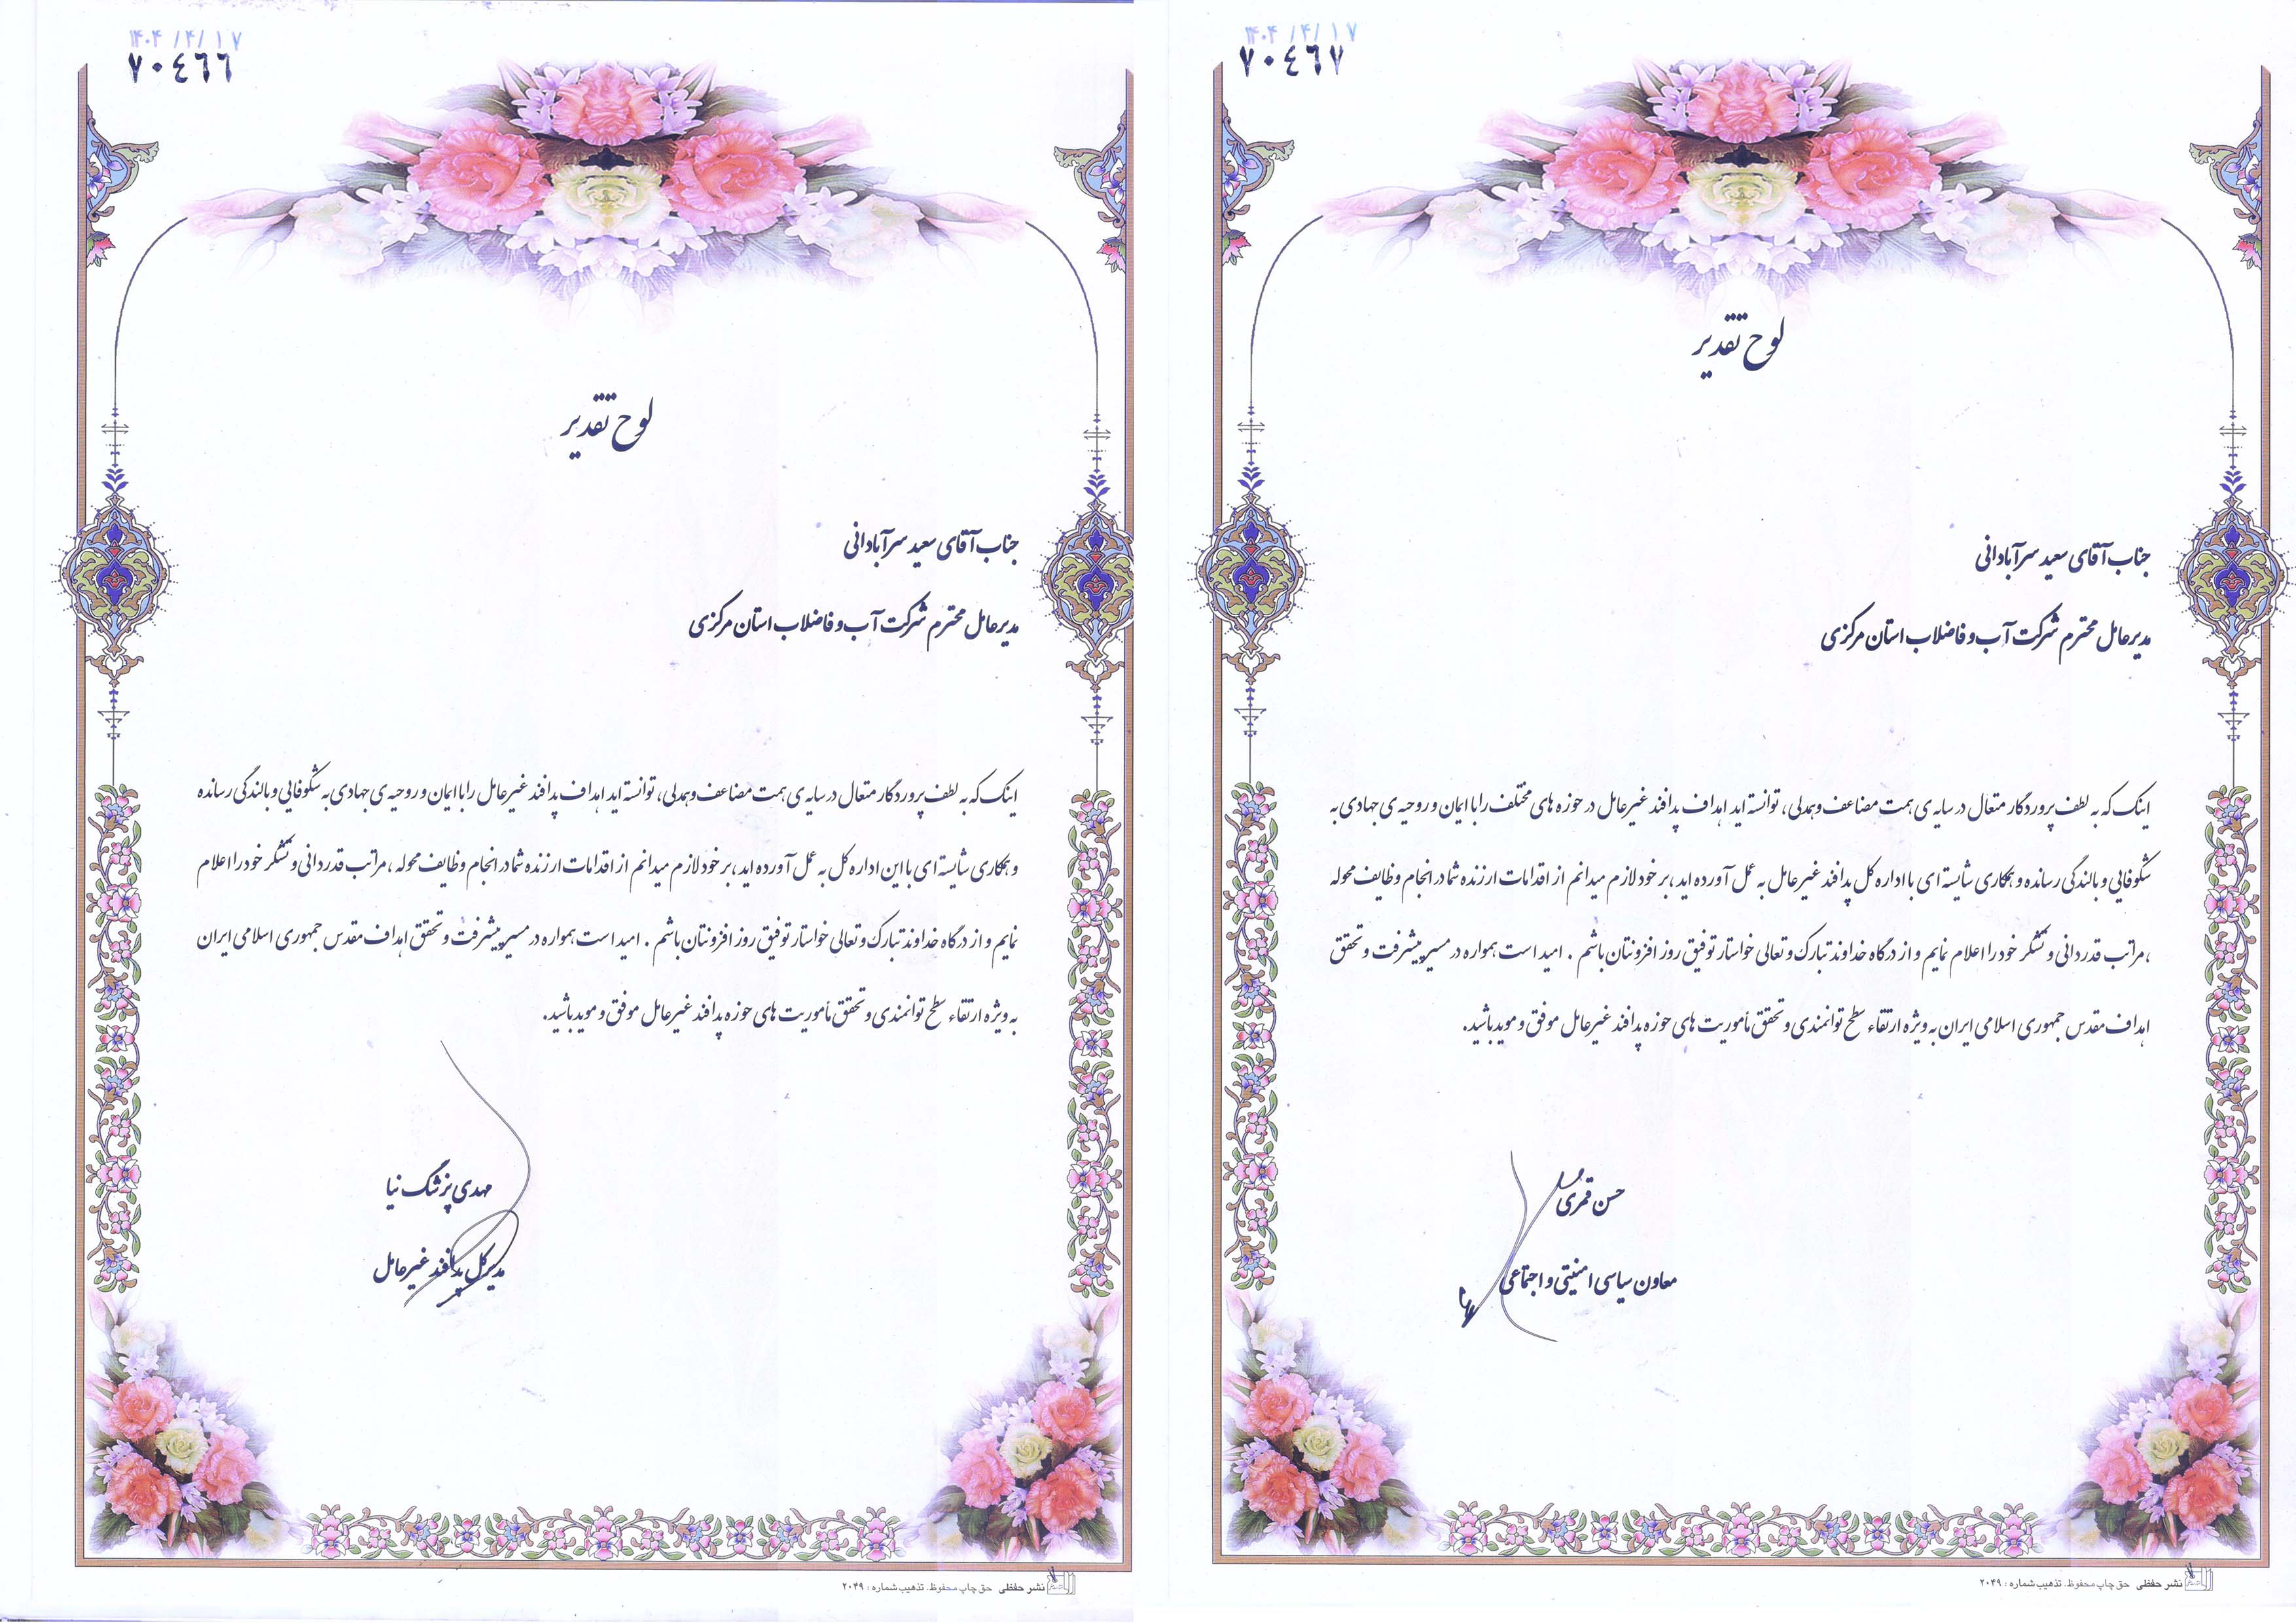 ۱۴۰۴/۴/۱۷
۷۰٤٦٦
لوح تقدیر
جناب آقای سعید سرآبادانی
مدیرعامل محترم شرکت آب و فاضلاب استان مرکزی
اینک که به لطف پروردگار متعال در سایه ی همت مضاعف و همدلی، توانسته اید اهداف پدافند غیرعامل را با ایمان و روحیه ی جهادی به شکوفایی و بالندگی رسانده
و همکاری شایسته ای با این اداره کل به عمل آورده اید، بر خود لازم میدانم از اقدامات ارزنده شما در انجام وظایف محوله ، مراتب قدردانی و تشکر خود را اعلام
نمایم و از درگاه خداوند تبارک و تعالی خواستار توفیق روز افزونتان باشم . امید است همواره در مسیر پیشرفت و تحقق اهداف مقدس جمهوری اسلامی ایران
به ویژه ارتقاء سطح توانمندی و تحقق مأموریت های حوزه پدافند غیرعامل موفق و موید باشید.
مهدی پزشک نیا
مدیرکل پدافند غیرعامل
نشر حفظی حق چاپ محفوظ. تذهیب شماره : ۲۰۴۹
۱۴۰۴/۴/۱۷
۷۰٤٦۷
لوح تقدیر
جناب آقای سعید سرآبادانی
مدیرعامل محترم شرکت آب و فاضلاب استان مرکزی
اینک که به لطف پروردگار متعال در سایه ی همت مضاعف و همدلی، توانسته اید اهداف پدافند غیرعامل در حوزه های مختلف را با ایمان و روحیه ی جهادی به
شکوفایی و بالندگی رسانده و همکاری شایسته ای با اداره کل پدافند غیرعامل به عمل آورده اید، بر خود لازم میدانم از اقدامات ارزنده شما در انجام وظایف محوله
، مراتب قدردانی و تشکر خود را اعلام نمایم و از درگاه خداوند تبارک و تعالی خواستار توفیق روز افزونتان باشم . امید است همواره در مسیر پیشرفت و تحقق
اهداف مقدس جمهوری اسلامی ایران به ویژه ارتقاء سطح توانمندی و تحقق مأموریت های حوزه پدافند غیرعامل موفق و موید باشید.
حسن قمری
معاون سیاسی امنیتی و اجتماعی
نشر حفظی حق چاپ محفوظ. تذهیب شماره : ۲۰۴۹